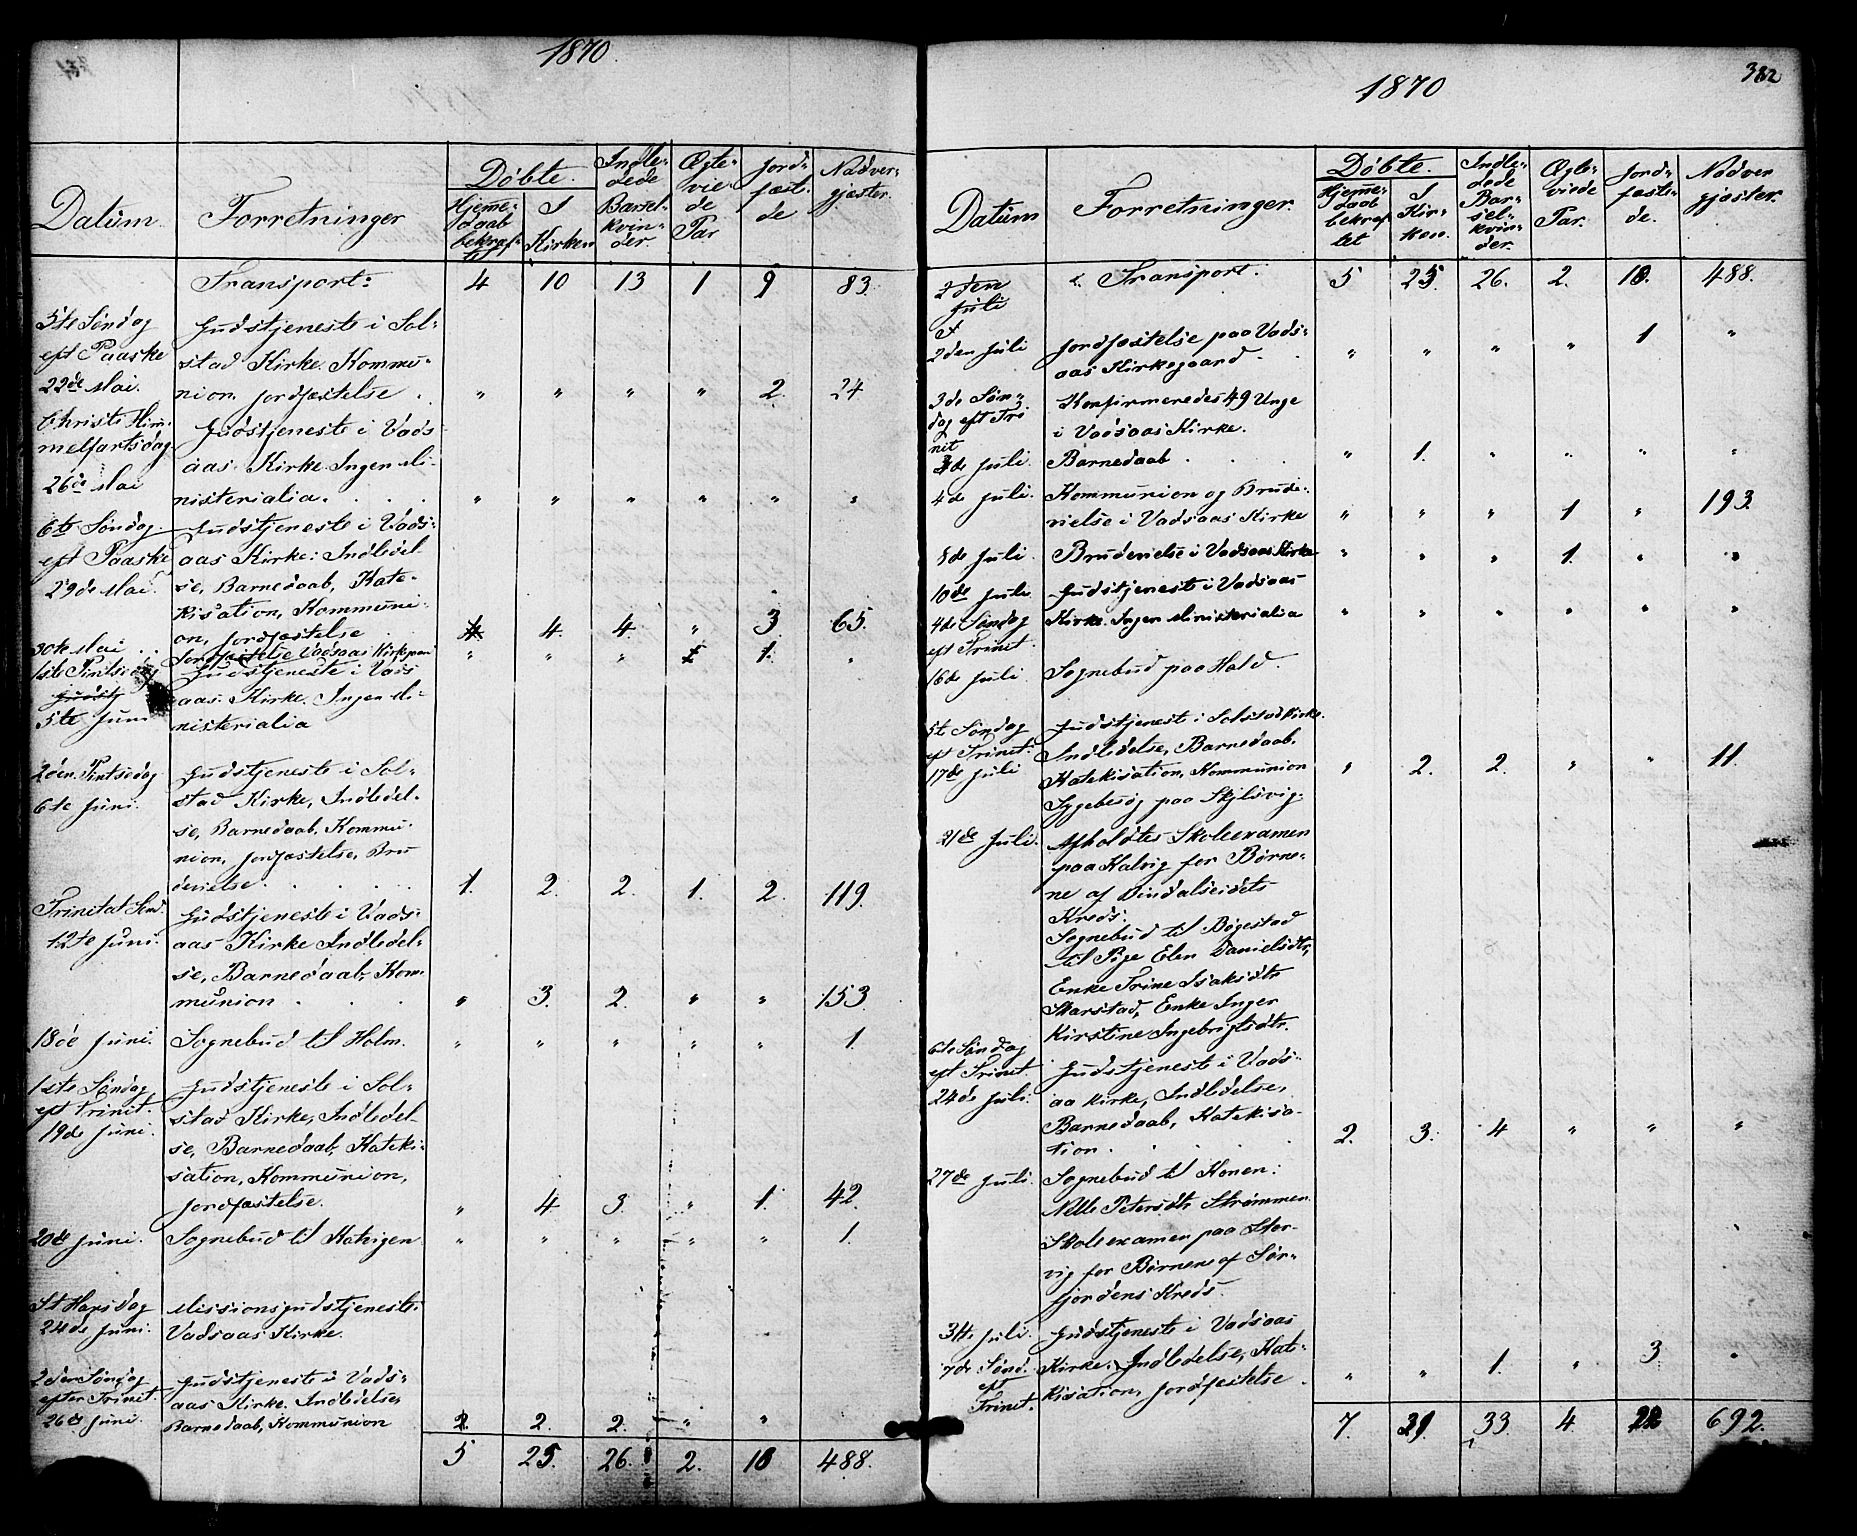 1870.
Datum.
Forretninger
Døbte.
Hjemme-
daab
bekræf-
tet
I
Kirken
Indle-
dede
Barsel-
kvin-
der.
Ægte-
vie-
de
Par
Jord-
fæst-
de
Nadver-
gjæster.
Transport: 4 10 13 1 9 83.
5te Søndag
eft Paaske
22de Mai.
Gudstjeneste i Sol-
stad Kirke. Kommu-
nion, Jordfæstelse . " " " " 2. 24
Christi Him-
melfartsdag
26de Mai
Gudstjeneste i Vads-
aas Kirke. Ingen Mi-
nisterialia. . . . " " " " " "
6te Søndag
eft Paaske
29de Mai.
Gudstjeneste i Vads-
aas Kirke: Indledel-
se, Barnedaab, Kate-
kisation, Kommuni-
on, Jordfæstelse 4. 4. " 3 65.
30te Mai . .
Jordfæstelse Vadsaas Kirkegaard " " " 1. "
1ste Pintsedag
Gudstj
5te Juni
Gudstjeneste i Vads
aas Kirke. Ingen Mi-
nisterialia
2den Pintsedag
6te Juni.
Gudstjeneste i Sol-
stad Kirke, Indledel-
se, Barnedaab, Kommu-
nion, Jordfæstelse, Bru
devielse. . . . . 1. 2. 2. 1. 2. 119.
Trinitat Sønd.
12te Juni.
Gudstjeneste i Vads-
aas Kirke Indledel-
se, Barnedaab, Kom
munion . . . " 3. 2. " " 153.
18de Juni. Sognebud til Holm. " " " " " 1.
1ste Søndag
eft Trinit.
19de Juni.
Gudstjeneste i Sol-
stad Kirke, Indledel-
se, Barnedaab, Kateki-
sation, Kommunion,
Jordfæstelse. " 4 3. " 1. 42.
20de Juni. Sognebud til Hatvigen " " " " " 1.
St Hansdag
24de Juni.
Missionsgudstjeneste i
Vadsaas Kirke.
2den Søndag
efter Trinit.
26de Juni.
Gudstjeneste i Vads-
aas Kirke. Indledelse,
Barnedaab, Kommunion 2. 2. 2. " "
5 25. 26. 2. 18 488.
1870
382
Datum
Forretninger.
Døbte.
Hjemme-
daab
bekræf
tet
I
Kir-
ken.
Indle-
dede
Bar-
sel-
kvin-
der.
Ægte-
viede
Par.
Jord-
fæste-
de.
Nadver
gjæster.
2den
Juli
Transport. 5 25. 26. 2. 18. 488.
2den Juli
Jordfæstelse paa Vads-
aas Kirkegaard . . " " " " 1 "
3de Søn-
dag eft Tri
nit
3de Juli.
Konfirmeredes 49 Unge
i Vadsaas Kirke.
Barnedaab . . . " 1. " " " "
4de Juli.
Kommunion og Brude-
vielse i Vadsaas Kirke " " " 1 " 193.
8de Juli. Brudevielse i Vadsaas Kirke " " " 1. " "
10de Juli.
4de Søndag
eft Trinit.
Gudstjeneste i Vadsaas
Kirke. Ingen Ministerialia " " " " " "
16de Juli Sognebud paa Hald.
5te Søndag
eft Trinit.
17de Juli
Gudstjeneste i Solstad Kirke.
Indledelse, Barnedaab,
Katekisation, Kommunion " 2. 2. " " 11.
Sygebesøg paa Skjelsvig.
21de Juli.
Afholdtes Skoleexamen
paa Kalvig for Børne-
ne af Dindalseidets
Kreds.
Sognebud til Bøgestad
til Pige Elen Danielsdtr,
Enke Trine Isaksdtr
Skarstad, Enke Inger
Kirstine Ingebrigtsdtr.
6te Søndag
eft Trinit.
24de Juli.
Gudstjeneste i Vads-
aa Kirke, Indledelse,
Barnedaab, Katekisa-
tion . . . . 2. 3. 4 " " "
27de Juli.
Sognebud til Konen:
Nelle Petersdtr Strømmen
Skoleexamen paa Stor-
vig for Børnene af Sør-
fjordens Kreds.
31te Juli.
7de Sønd.
eft
Trinit.
Gudstjeneste i Vadsaas
Kirke. Indledelse, Kate-
kisation, Jordfæstelse . " " 1. " 3 "
7. 31. 33 4. 22 692.